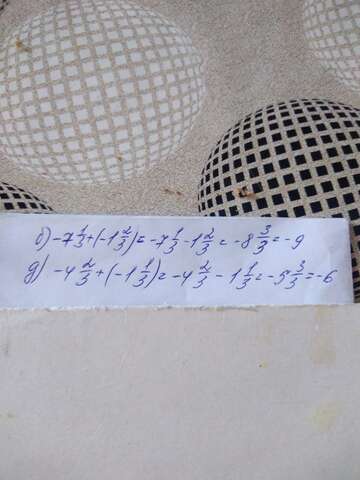 б) -7 1/3 + (-1 2/3) = -7 1/3 - 1 2/3 = -8 3/3 = -9
д) -4 2/3 + (-1 1/3) = -4 2/3 - 1 1/3 = -5 3/3 = -6